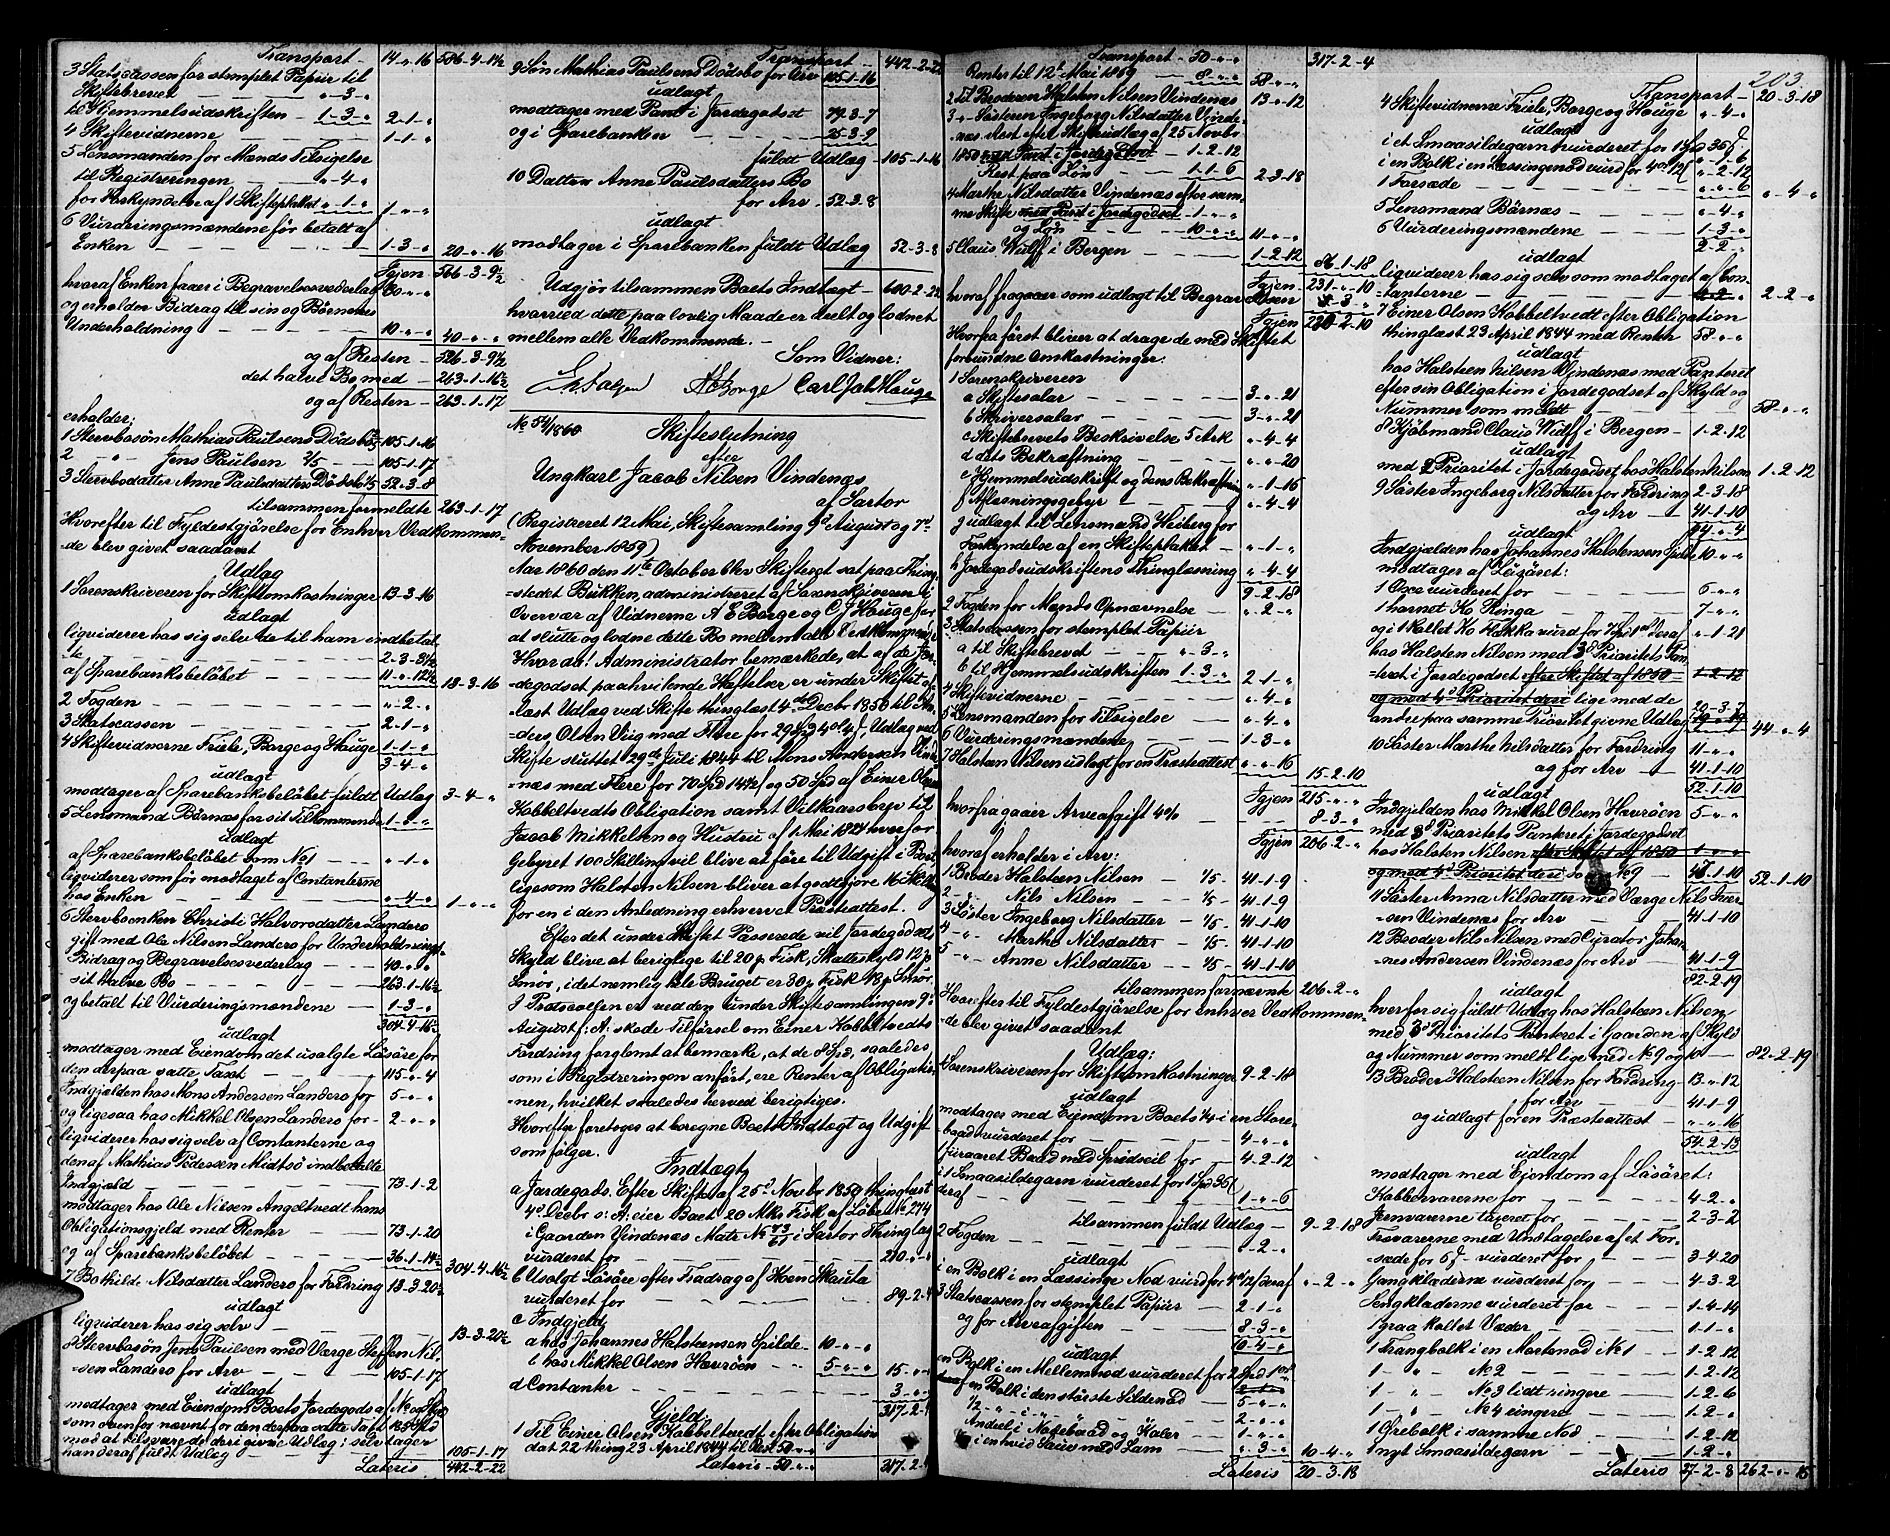 Transport - 14-"-16 586-4-1½
3 Statscassen for stemplet Papiir til
Skiftebrevet - "-3-"
til Hjemmelsudskriften - 1-3-" 2-1-"
4 Skiftevidnerne 1-1-"
5 Lensmanden for Mands Tilsigelse
til Registreringen - "-4-"
for Forkyndelse af 1 Skifteplakat "-1-" 1-"-"
6 Vurderingsmændene før betalt af
Enken 1-3-" 20-"-16
Igjen 566-3-9½
hvoraf Enken faaer i Begravelsesvederlag 30-"-"
og erholder Bidrag til sin og Børnenes
Underholdning 10-"-" 40-"-"
og af Resten - 526-3-9½
det halve Bo med - 263-1-16½
og af Resten - 263-1-17
erholder:
1 Stervbosøn Mathias Paulsens Dødsbo 2/5 105-1-16
2 " - Jens Paulsen 2/5 - 105-1-17
3 Stervbodatter Anne Paulsdatters Dødsbo 1/5 52-3-8
tilsammen formeldte 263-1-17
Hvorefter til Fyldestgjørelse for Enhver Vedkommen-
-de blev givet saadant
Udlæg
1 Sorenskriveren for Skifteomkostninger 13-3-16
udlagt
liqviderer hos sig selv de til ham indbetalte
2-3-3½
af Sparebanksbeløbet 11-"-12½ 13-3-16
2 Fogden "-2-"
3 Statscassen 2-1-"
4 Skiftevidnerne Friele, Borge og Hauge 1-1-"
3-4-"
udlagt
modtager af Sparebanksbeløbet fuldt Udlæg 3-4-"
5 Lensmand Børnæs for sit Tilkommende 1-"-"
udlagt
af Sparebanksbeløbet som No 1 "-1-"
liqviderer som før modtaget af Contanterne
hos Enken "-4-" 1-"-"
6 Stervboenken Christi Halvorsdatter Landero
gift med Ole Nilsen Landero for Underholdnings-
Bidrag og Begravelsesvederlag 40-"-"
sit halve Bo 263-1-16½
og betalt til Vurderingsmændene 1-3-"
304-4-16½
udlagt
modtager med Eiendom det usolgte Løsøre for
den derpaa satte Taxt 115-"-4
Indgjælden hos Mons Andersen Landero for 5-"-"
og ligesaa hos Mikkel Olsen Landero for 2-"-"
liqviderer hos sig selv af Contanterne og
den af Mathias Pedersen Midtsø indbetalte
Indgjæld 73-1-2
modtager hos Ole Nilsen Angeltvedt hans
Obligationsgjeld med Renter 73-1-20
og af Sparebanksbeløbet 36-1-14½ 304-4-16½
7 Bothilde Nilsdatter Landero for Fordring 13-3-20½
udlagt
liqviderer hos sig selv 13-3-20½
8 Stervbosøn Jens Paulsen med Værge Steffen Nil-
-sen Landero for Arv 105-1-17
udlagt
modtager med Eiendom Boets Jordegods af No og Skyld
som ovenfor nævnt for den derpaa satte Taxt
mod at tilsvare de deri givne Udlæg: selv tager
handeraf fuldt Udlæg 105-1-17
Lateris 442-2-22
Transport 442-2-22
9 Søn Mathias Paulsens Dødsbo for Arv 105-1-16
udlagt
modtager med Pant i Jordegodset 79-3-7
og i Sparebanken 25-3-9
fuldt Udlæg - 105-1-16
10 Datter Anne Paulsdatters Bo
for Arv 52-3-8
udlagt
modtager i Sparebanken fuldt Udlæg 52-3-8
Udgjør tilsammen Boets Indtægt - 600-2-22
hvormed dette paa lovlig Maade er deelt og lodnet
mellem alle Vedkommende. -
Som Vidner:
A E Borge Carl Joh Hauge
No 54/1860 Skifteslutning
efter
Ungkarl Jacob Nilsen Vindenæs
af Sartor
(Registreret 12 Mai, Skiftesamling 9d August og 7d
November 1859)
Aar 1860 den 11te October blev Skifteret sat paa Thing-
-stedet Bukken, administreret af Sorenskriveren i
Overvær af Vidnerne A E Borge og C J Hauge for
at slutte og lodne dette Bo mellem alle Vedkommende
Hvorda! Administrator bemærkede, at af de Jor-
-degodset paahvilende Heftelser er under Skiftet af-
-læst Udlæg ved Skifte thinglæst 4de Decbr 1850 til An-
-ders Olsen Viig med Flere for 29 Spd 4 ort 4 s, Udlæg ved
Skifte sluttet 29de Juli 1844 til Mons Andersen Vinde-
næs med Flere for 70 Spd 14½ s og 50 Spd af Einer Olsen
Kobbeltvedts Obligation samt Vilkaarsbrev til
Jacob Mikkelsen og Hustru af 1 Mai 1824 hvorfor
Gebyret 100 Skilling vil blive at føre til Udgift i Boet,
ligesom Halsten Nilsen bliver at godtgjøre 16 Skilling
for en i den Anledning erhvervet Præsteattest.
Efter det under Skiftet Passerede vil Jordegodsets
Skyld blive at berigtige til 20 p Fisk, Skatteskyld 12 p
Smør, idet nemlig hele Bruget er 30 p Fisk 18 p Smør.
I Protocollen er ved den under Skiftesamlingen 9de
August f: A: skede Tilførsel om Einer Kobbeltvedts
Fordring forglemt at bemærke, at de 8 Spd, saaledes
som i Registreringen anført, ere Renter af Obligatio-
nen, hvilket saaledes herved berigtiges.
Hvorefter foretoges at beregne Boets Indtægt og Udgift
som følger.
Indtægt
a Jordegods. Efter Skifte af 25d Novbr 1850 thinglæst
4d Decbr s: A: eier Boet 20 Mkr Fisk af Løbe No 274
i Gaarden Vindenæs Matr No 73/61 i Sartor Thinglag
vurderet for 210-"-"
b Usolgt Løsøre efter Fradrag af Koen Skauta
vurderet for 89-2-4
c Indgjeld
a hos Johannes Halsteensen Spilde 10-"-"
b hos Mikkel Olsen Havrøen 5-"-" 15-"-"
d Contanter 3-"-"
317-2-4
Gjeld
1 Til Einer Olsen Kobbeltvedt efter Obligation
dat 22 thing 23 April 1844 til Rest 50-"-"
Lateris - 50-"-" 317-2-4
Transport - 50-"-" 317-2-4
Renter til 12t Mai 1859 8-"-" 58-"-"
2 Til Broderen Halsten Nilsen Vindenæs 13-"-12
3 "- Søsteren Ingeborg Nilsdatter Vinde-
næs Rest efter Skifteudlæg af 25 Novbr
1850 med Pant i Jordegodset 1-2-12
Rest paa Løn 1-1-6 2-3-18
4 Marthe Nilsdatter Vindenæs efter sam-
me Skifte med Pant i Jordegodset 1-"-"
og Løn 10-"-" 11-"-"
5 Claus Wulff i Bergen 1-2-12 86-1-18
Igjen 231-"-10
hvoraf fragaaer som udlagt til Begravelsen
Igjen 230-2-10
Hvorfra først bliver at drage de med Skiftet
forbundne Omkostninger:
1 Sorenskriveren
a Skiftesalar 3-"-21
b Skriversalar 3-"-21
c Skiftebrevets Beskrivelse 5 Ark "-4-4
d dets Bekræftning "-"-20
e Hjemmelsudskrift og dens Bekræftning "-1-16
f Aflæsningsgebyr "-4-4
g udlagt til Lensmand Heiberg for
Forkyndelse af en Skifteplakat "-1-"
h Jordegodsudskriftens Thinglæsning "-4-4
9-2-18
2 Fogden for Mands Opnævnelse "-2-"
3 Statscassen for stemplet Papiir
a til Skiftebrevet "-3-"
b til Hjemmelsudskriften 1-3-" 2-1-"
4 Skiftevidnerne "-4-"
5 Lensmanden for Tilsigelse "-4-"
6 Vurderingsmændene 1-3-"
7 Halsten Nilsen udlagt for en Præsteattest "-"-16 15-2-10
Igjen 215-"-"
hvorfra gaaer Arveafgift 4% 8-3-"
Igjen 206-2-"
hvoraf erholder i Arv:
1 Broder Halsteen Nilsen - 1/5 - 41-1-9
2 " Nils Nilsen - 1/5 - 41-1-9
3 Søster Ingeborg Nilsdatter - 1/5 - 41-1-10
4 " Marthe Nilsdatter - 1/5 - 41-1-10
5 " Anne Nilsdatter - 1/5 - 41-1-10
tilsammen fornævnte 206-2-"
Hvorefter til Fyldestgjørelse for Enhver Vedkommen-
-de blev givet saadant
Udlæg:
1 Sorenskriveren for Skifteomkostninger 9-2-18
udlagt
modtager med Eiendom Boets ¼ i en Store-
baad vurderet for 4-"-"
firaaret Baad med Spridseil for 4-2-12
i 1 Smaasildegarn vurderet for 1 Spd 36 s
deraf 1-"-6
tilsammen fuldt Udlæg - 9-2-18
2 Fogden "-2-"
udlagt
i en Bolk i en Læssinge Nod vurd for 4 ort 12 s deraf "-2-"
3 Statscassen for stemplet Papiir 2-1-"
og for Arveafgiften 8-3-"
10-4-"
udlagt
en Bolk i en Mellemnod vurderet for 2 Spd 1 ort
en Bolk i den største Sildenod 5-"-"
½ - " - i - " 2-"-"
Andeel i Notebaad og Kaler 1-"-"
i en hvid Sau med Lam "-3-" 10-4-"
Lateris 20-3-18
203.
Transport - 20-3-18
4 Skiftevidnerne Friele, Borge og Hauge "-4-"
udlagt
i et Smaasildegarn vurderet for 1 Spd 36 s "-1-6
i en Bolk i en Læssingenod vurd for 4 ort 12 s "-2-12
1 Forsæde "-"-6 "-4-"
5 Lensmand Børnæs "-4-"
6 Vurderingsmændene 1-3-"
2-2-"
udlagt
liqviderer hos sig selv som modtaget af Con-
-tanterne 2-2-"
7 Einer Olsen Kobbeltvedt efter Obligation
thinglæst 23 April 1844 med Renter 58-"-"
udlagt
hos Halsteen Nilsen Vindenæs med Panteret
efter sin Obligation i Jordegodset af Skyld og
Nummer som meldt 58-"-"
8 Kjøbmand Claus Wulff i Bergen - 1-2-12
udlagt
med 2 Prioritet i Jordegodset hos Halsten Nilsen 1-2-12
9 Søster Ingeborg Nilsdatter for Fordring 2-3-18
og Arv 41-1-10
44-"-4
udlagt
Indgjælden hos Johannes Halstensen Spilde 10-"-"
modtager af Løsøret:
1 Oxe vurderet for 6-"-"
1 hornet Ko Ringa 7-"-"
og i 1 kollet Ko Flekka vurd for 7 Spd 1 ort deraf "-1-21
hos Halsten Nilsen med 3d Prioritets Pan-
-teret i Jordegodset efter Skiftet af 1850 1-2-12
og med 4d Prioritet deri lige med de
andre paa samme Prioritet givne Udlæg 20-3-7 44-"-4
10 Søster Marthe Nilsdatter for Fordring 11-"-"
og for Arv 41-1-10
52-1-10
udlagt
Indgjelden hos Mikkel Olsen Havrøen 5-"-"
med 3d Prioritets Panteret i Jordegodset
hos Halsten Nilsen efter Skiftet af 1850 1-"-"
og med 4d Prioritet deri som No 9 47-1-10 52-1-10
11 Søster Anna Nilsdatter med Værge Nils Iver-
-sen Vindenæs for Arv 41-1-10
12 Broder Nils Nilsen med Curator Johan-
nes Andersen Vindenæs for Arv 41-1-9
82-2-19
udlagt
hver for sig fuldt Udlæg hos Halsteen Nilsen
med 3d Prioritets Panteret i Gaarden af Skyld
og Nummer som meldt lige med No 9 og 10 82-2-19
13 Broder Halsteen Nilsen for Fordring 13-"-12
for Arv 41-1-9
og udlagt for en Præsteattest "-"-16
54-2-13
udlagt
modtager med Ejendom af Løsøret:
Kobbervarerne for 4-2-"
Jernvarerne taxeret for 2-3-2
Trævarerne med Undtagelse af et For-
sæde for 6 s vurderet for 3-4-20
Gangklæderne vurderet for 4-3-2
Sengklæderne vurderet for 1-4-14
1 graa kollet Væder 1-1-"
1 Trangbolk i en Mortenod No 1 1-2-12
1 " - No 2 1-2-12
1 - " - No 3 lidt ringere 1-2-6
1 - " - No 4 ringere 1-2-"
1 Ørebolk i samme Nod 1-2-12
1 nyt Smaasildegarn 1-2-"
Lateris 27-2-8 262-"-15